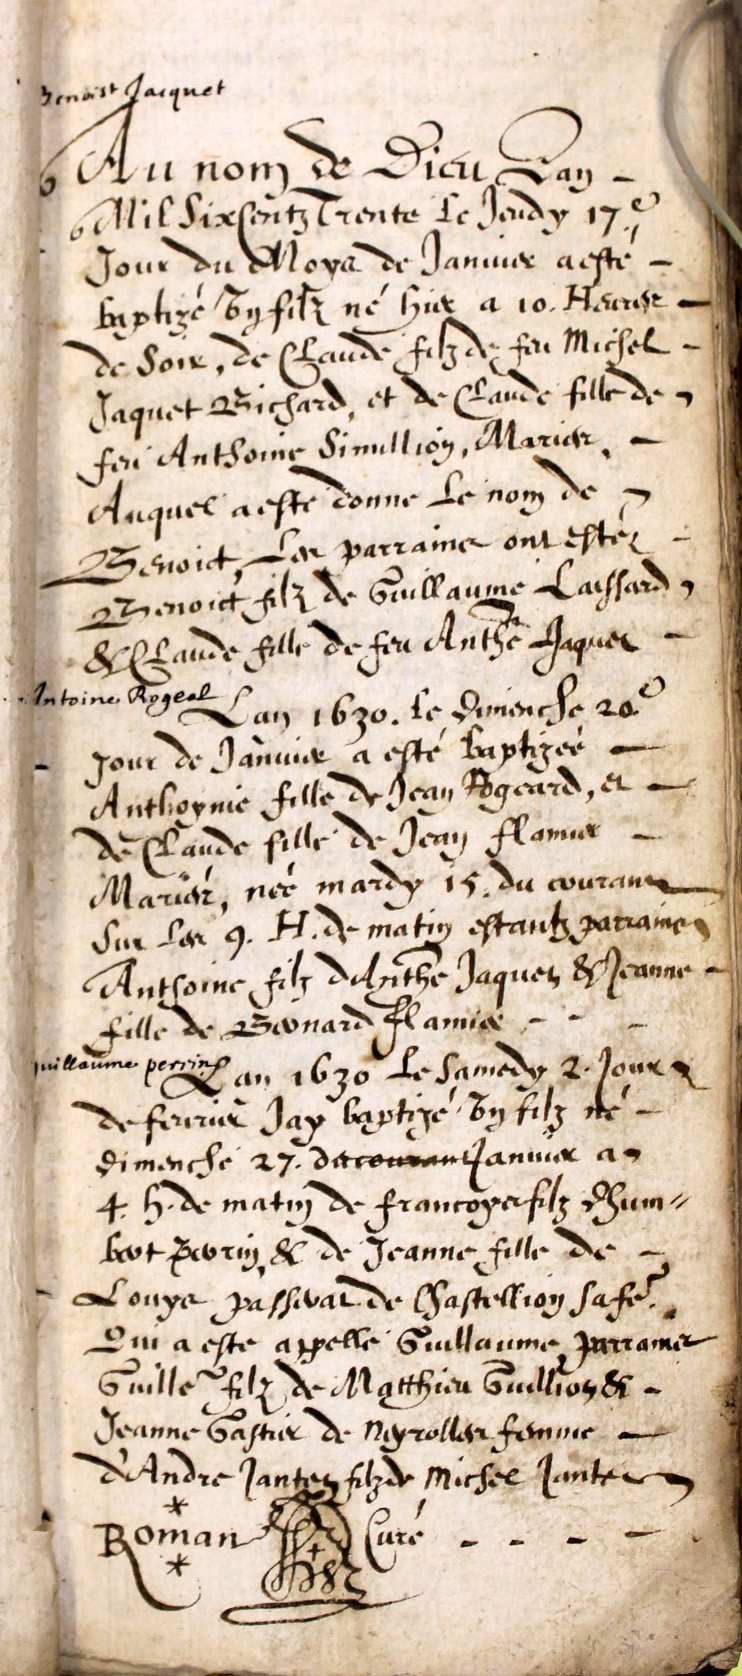 Benoist Jacquet
Au nom de Dieu Lan
Mil Six Centz Trente Le Jeudy 17.e
Jour du Moys de Janvier a esté
baptizé Vng filz né hier a 10. Heures
de Soir, de Claude filz de feu Michel
Jaquet Bichard, et de Claude fille de
feu Anthoine Simullion, Mariez,
Auquel a este donne Le nom de
Benoict, Les parrains ont estéz
Benoict filz de Guillaume Laissard
& Claude fille de feu Anthe Jaquet
Antoine Rogeal
Lan 1630. Le dimenche 20.e
Jour de Janvier a esté baptizée
Anthoynie fille de Jean Rogeard, et
de Claude fille de Jean flamier
Mariéz, née mardy 15. du courant
Sur Les 9. H. de matin estantz parrains
Anthoine filz dAnthe Jaquet & Jeanne
fille de Bernard flamier
Guillaume perrin
Lan 1630 Le Samedy 2. Jour
de fevrier Jay baptizé Vng filz né
dimenche 27. de courant Janvier a
4. h. de matin de francoys filz dhum=
bert perrin, & de Jeanne fille de
Louys passerat de Chastellion sa fe.
Qui a este appelle Guillaume, parrains
Guille filz de Matthieu Guillion &
Jeanne Gastier de Neyrolles femme
d'Andre Jantet filz de Michel Jantet
Roman Curé